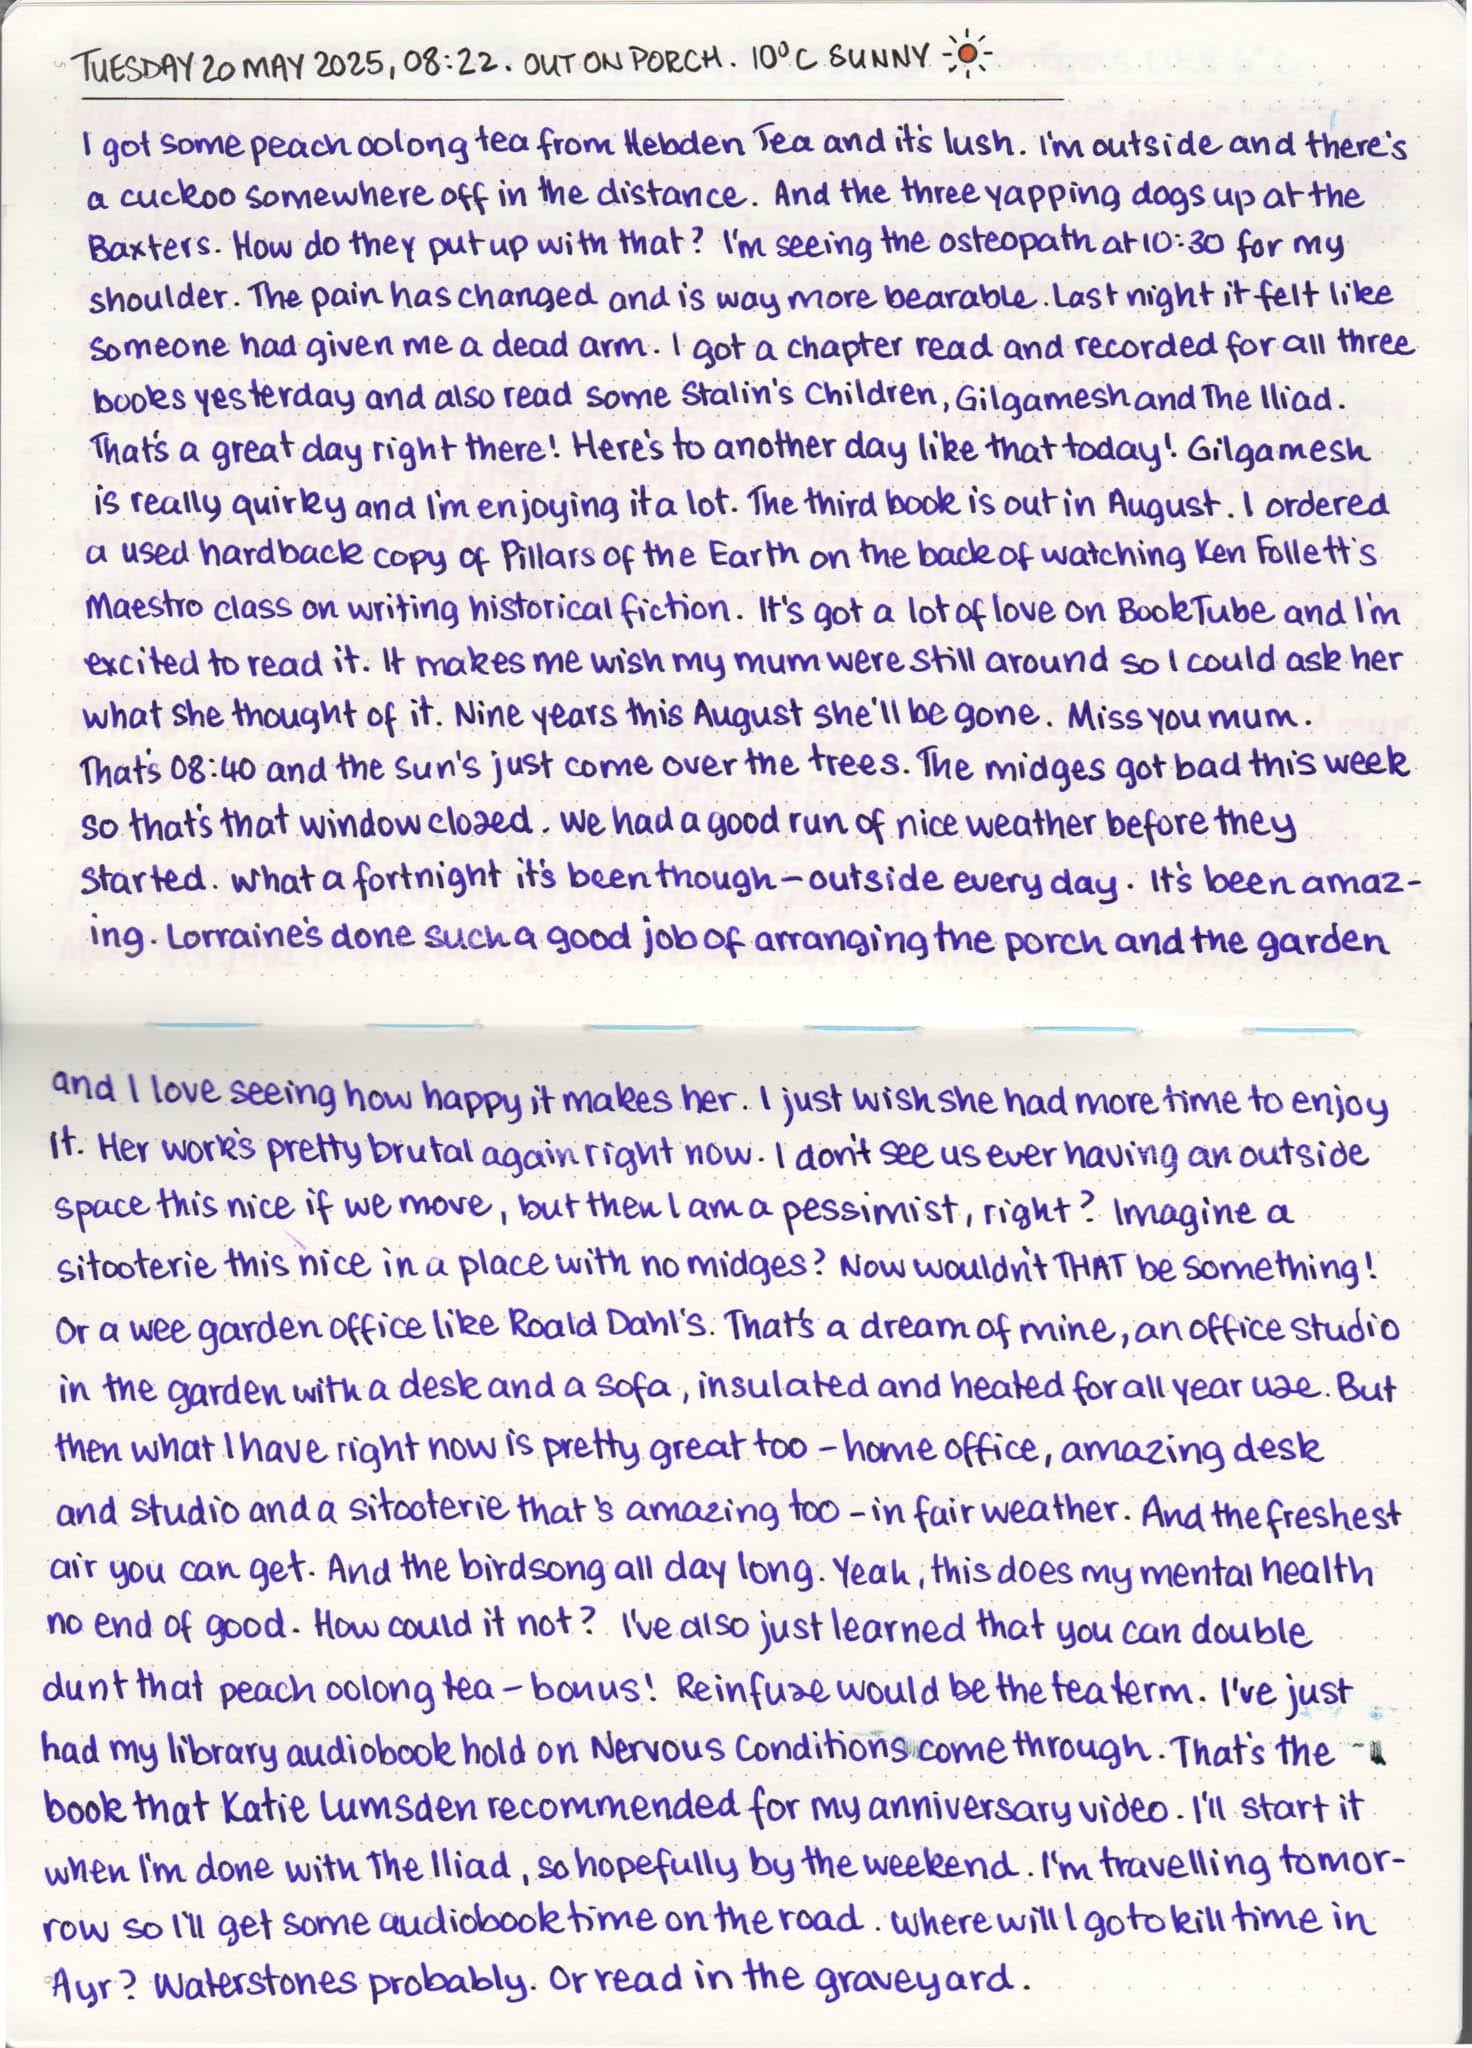 TUESDAY 20 MAY 2025, 08:22. OUT ON PORCH. 10°C SUNNY
I got some peach oolong tea from Hebden Tea and it's lush. I'm outside and there's
a cuckoo somewhere off in the distance. And the three yapping dogs up at the
Baxters. How do they put up with that? I'm seeing the osteopath at 10:30 for my
shoulder. The pain has changed and is way more bearable. Last night it felt like
someone had given me a dead arm. I got a chapter read and recorded for all three
books yesterday and also read some Stalin's Children, Gilgamesh and The Iliad.
That's a great day right there! Here's to another day like that today! Gilgamesh
is really quirky and I'm enjoying it a lot. The third book is out in August. I ordered
a used hardback copy of Pillars of the Earth on the back of watching Ken Follett's
Maestro class on writing historical fiction. It's got a lot of love on BookTube and I'm
excited to read it. It makes me wish my mum were still around so I could ask her
what she thought of it. Nine years this August she'll be gone. Miss you mum.
That's 08:40 and the sun's just come over the trees. The midges got bad this week
so that's that window closed. We had a good run of nice weather before they
started. What a fortnight it's been though – outside every day. It's been amaz-
ing. Lorraine's done such a good job of arranging the porch and the garden
and I love seeing how happy it makes her. I just wish she had more time to enjoy
it. Her work's pretty brutal again right now. I don't see us ever having an outside
space this nice if we move, but then I am a pessimist, right? Imagine a
sitooterie this nice in a place with no midges? Now wouldn't THAT be something!
Or a wee garden office like Roald Dahl's. That's a dream of mine, an office studio
in the garden with a desk and a sofa, insulated and heated for all year use. But
then what I have right now is pretty great too – home office, amazing desk
and studio and a sitooterie that's amazing too – in fair weather. And the freshest
air you can get. And the birdsong all day long. Yeah, this does my mental health
no end of good. How could it not? I've also just learned that you can double
dunt that peach oolong tea – bonus! Reinfuse would be the tea term. I've just
had my library audiobook hold on Nervous Conditions come through. That's the
book that Katie Lumsden recommended for my anniversary video. I'll start it
when I'm done with The Iliad, so hopefully by the weekend. I'm travelling tomor-
row so I'll get some audiobook time on the road. Where will I go to kill time in
Ayr? Waterstones probably. Or read in the graveyard.